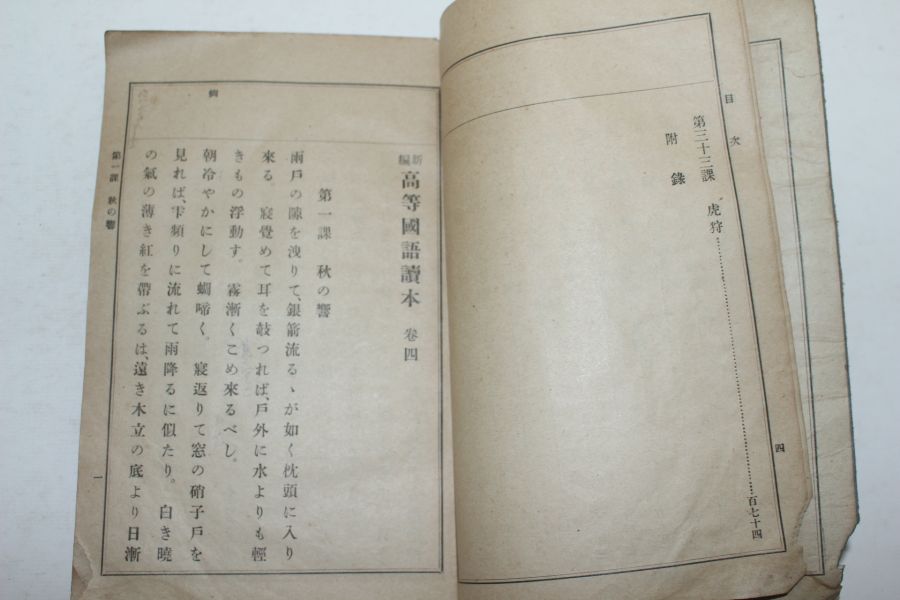 目次
第三十三課 虎狩……百七十四
附錄
四
新編 高等國語讀本 卷四
第一課 秋の響
雨戶の隙を洩りて、銀箭流るゝが如く枕頭に入り
來る。寢覺めて耳を敧つれば、戶外に水よりも輕
きもの浮動す。霧漸くこめ來るべし。
朝冷やかにして蜩啼く。寢返りて窓の硝子戶を
見れば、雫頻りに流れて雨降るに似たり。白き曉
の氣の薄き紅を帶ぶるは、遠き木立の底より日漸
蜩
第一課 秋の響
一